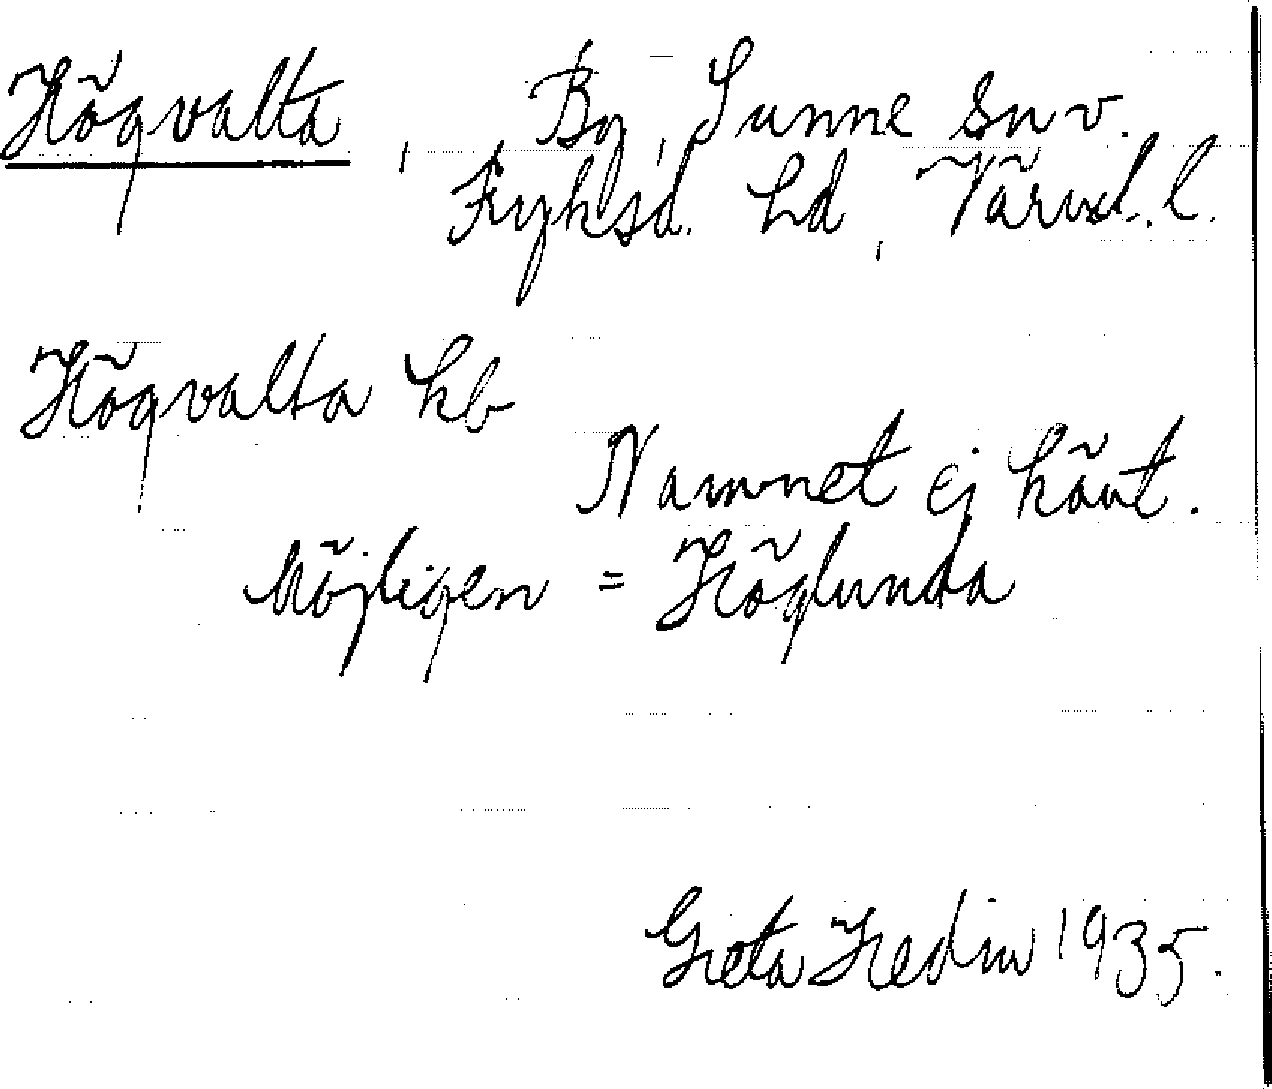 Högvalta, By, Sunne sn v.
Fryksd. hd, Värml. l.
Högvalta kb
Namnet ej känt.
Möjligen = Höglunda
Greta Hedin 1935.